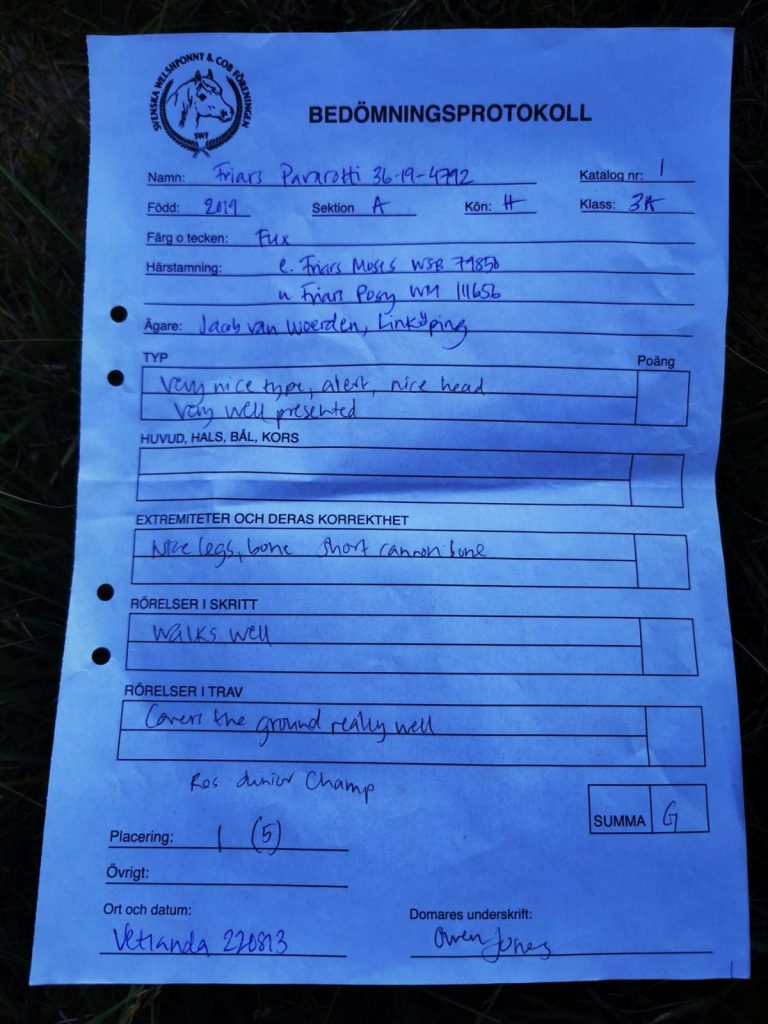 SVENSKA WELSHPONNY & COB FÖRENINGEN
SWF
BEDÖMNINGSPROTOKOLL
Namn: Friars Pavarotti 36-19-4792 Katalog nr: 1
Född: 2019 Sektion A Kön: H Klass: 3A
Färg o tecken: Fux
Härstamning: e. Friars Moses WSB 79850
u. Friars Posy WM 111656
Ägare: Jacob van Woerden, Linköping
TYP Poäng
Very nice type, alert, nice head
Very well presented
HUVUD, HALS, BÅL, KORS
EXTREMITETER OCH DERAS KORREKTHET
Nice legs, bone short cannon bone
RÖRELSER I SKRITT
Walks well
RÖRELSER I TRAV
Covers the ground really well
Res Junior Champ
SUMMA G
Placering: 1 (5)
Övrigt:
Ort och datum: Domares underskrift:
Vetlanda 220813 Owen Jones